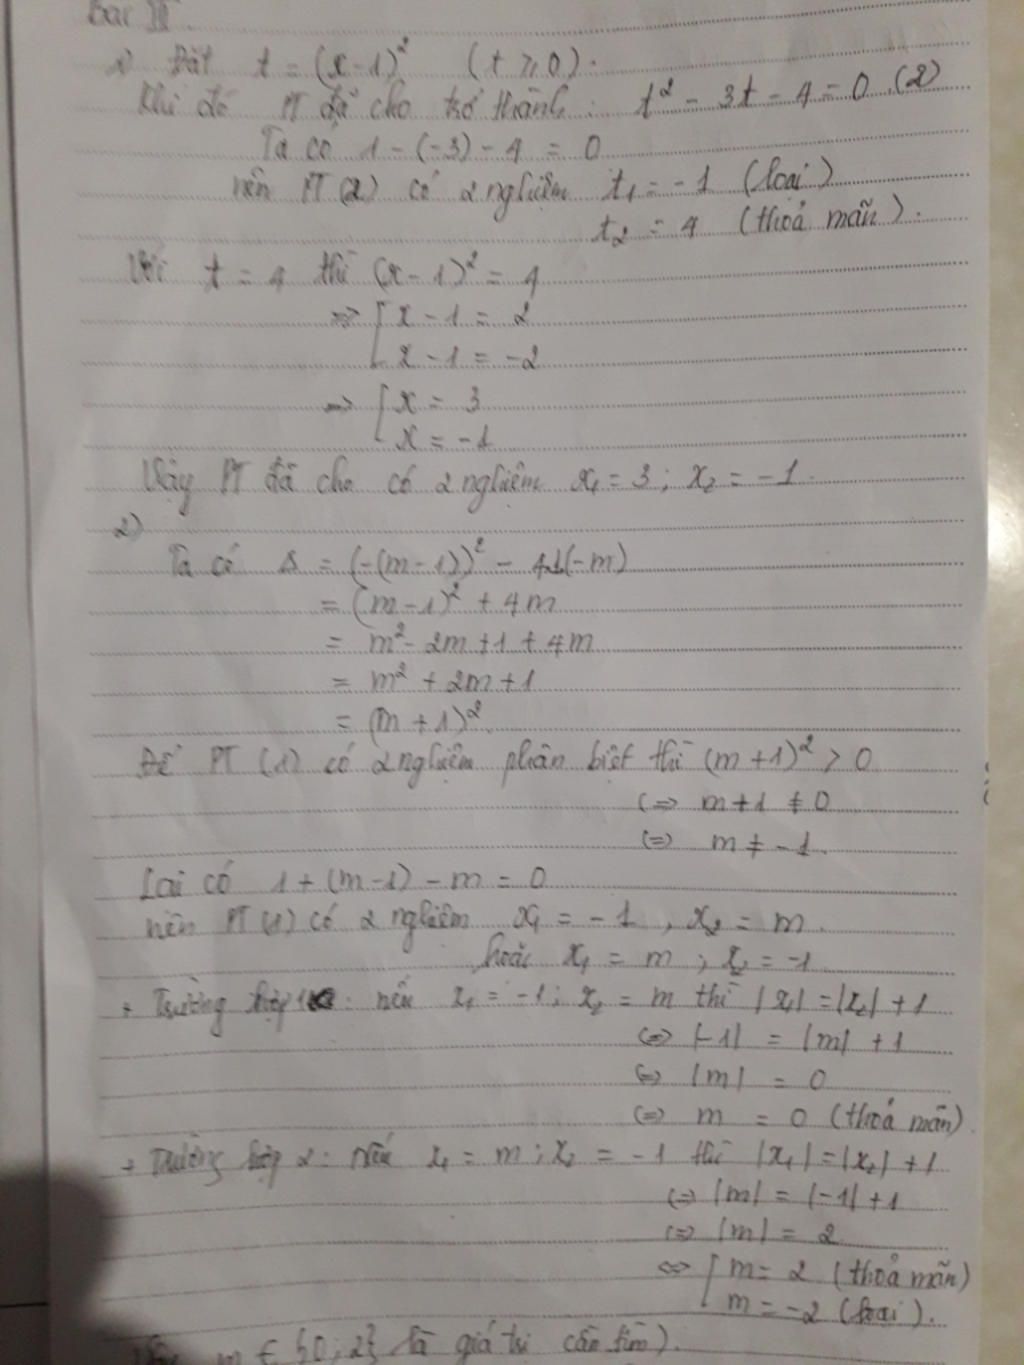 Bài III.
1) Đặt t = (x-1)² (t ≥ 0).
Khi đó PT đã cho trở thành: t² - 3t - 4 = 0 (2)
Ta có 1 - (-3) - 4 = 0
nên PT (2) có 2 nghiệm t₁ = -1 (loại)
t₂ = 4 (thoả mãn).
Với t = 4 thì (x-1)² = 4
=> [ x - 1 = 2
x - 1 = -2
=> [ x = 3
x = -1
Vậy PT đã cho có 2 nghiệm x₁ = 3; x₂ = -1.
2)
Ta có Δ = (-(m-1))² - 4.1(-m)
= (m-1)² + 4m
= m² - 2m + 1 + 4m
= m² + 2m + 1
= (m+1)²
Để PT (1) có 2 nghiệm phân biệt thì (m+1)² > 0
(=> m+1 ≠ 0
(=) m ≠ -1.
Lại có 1 + (m-1) - m = 0
nên PT (1) có 2 nghiệm x₁ = -1, x₂ = m.
hoặc x₁ = m; x₂ = -1
+ Trường hợp 1: nếu x₁ = -1; x₂ = m thì |x₁| = |x₂| + 1
(=) |-1| = |m| + 1
(=) |m| = 0
(=) m = 0 (thoả mãn).
+ Trường hợp 2: Nếu x₁ = m; x₂ = -1 thì |x₁| = |x₂| + 1
(=) |m| = |-1| + 1
(=) |m| = 2
<=> [ m = 2 (thoả mãn)
m = -2 (loại).
Vậy m ∈ {0; 2} là giá trị cần tìm).